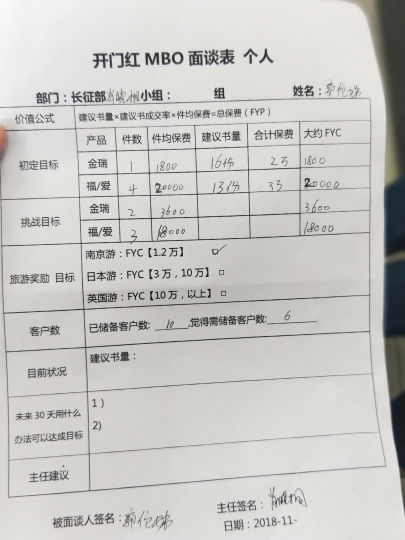 开门红 MBO 面谈表 个人
部门：长征部 小组： 组 姓名：
价值公式 建议书量×建议书成交率×件均保费=总保费（FYP）
产品 件数 件均保费 建议书量 合计保费 大约 FYC
初定目标
金瑞 1 1800 16份 2万 1800
福/爱 4 20000 13份 3万 20000
挑战目标
金瑞 2 3600 3600
福/爱 3 18000 18000
旅游奖励 目标
南京游：FYC【1.2 万】 □✓
日本游：FYC【3 万，10 万】 □
英国游：FYC【10 万，以上】 □
客户数 已储备客户数: 10 ,觉得需储备客户数: 6
目前状况 建议书量：
未来 30 天用什么
办法可以达成目标
1）
2)
主任建议
被面谈人签名：
主任签名：
日期：2018-11-